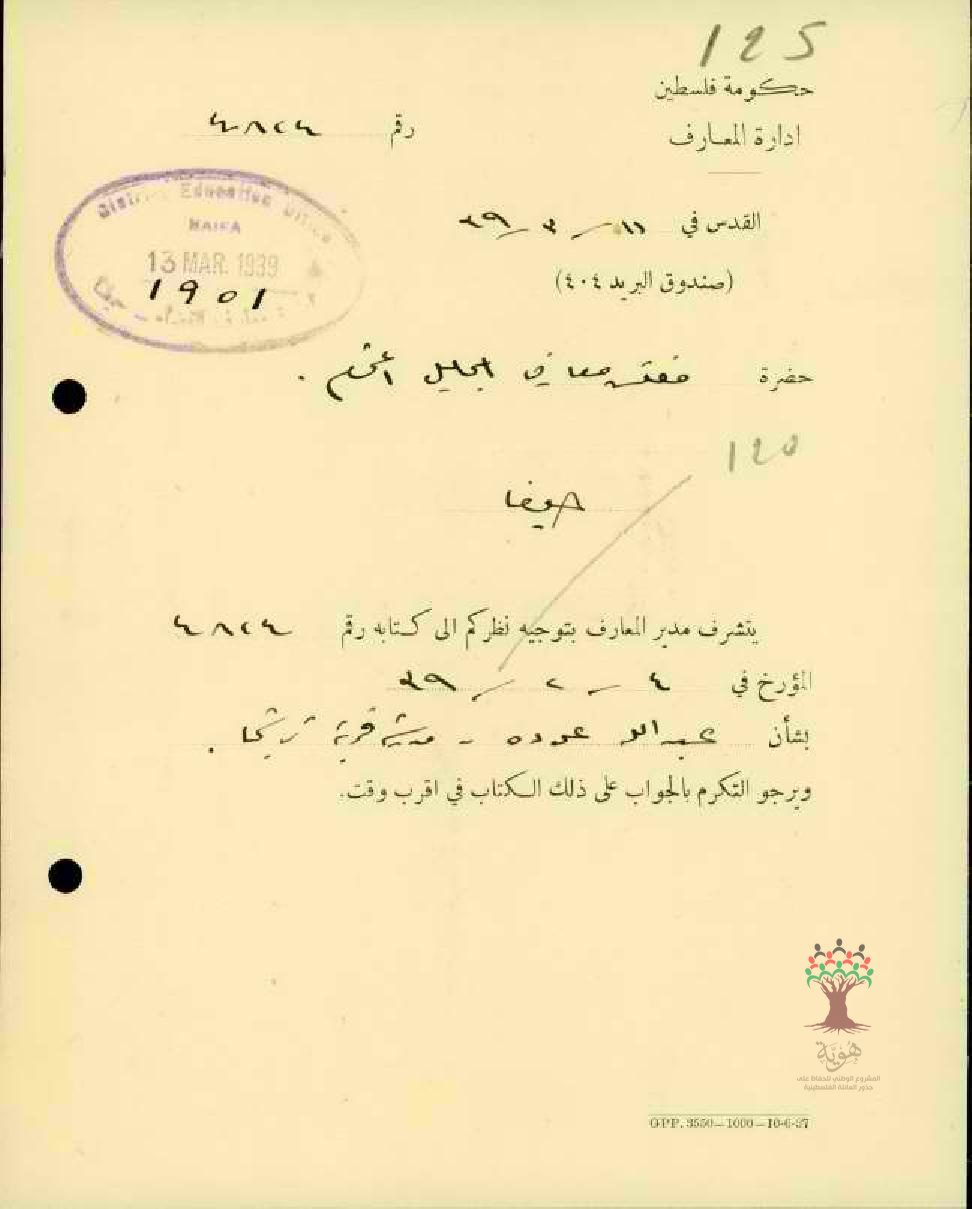 125
حكومة فلسطين
ادارة المعارف
رقم ٤٨٢٤
District Education Office
HAIFA
13 MAR. 1939
1901
القدس في ١١ / ٣ / ٣٩
(صندوق البريد ٤٠٤)
حضرة مفتش معارف الجليل المحترم .
120
حيفا
يتشرف مدير المعارف بتوجيه نظركم الى كتابه رقم ٤٨٢٤
المؤرخ في ٤ - ٢ / ٣٩
بشأن عبد الله عوده - قرية ترشيحا .
ويرجو التكرم بالجواب على ذلك الكتاب في اقرب وقت.
هُوِيَّة
المشروع الوطني للحفاظ على
جذور العائلة الفلسطينية
GPP. 3550—1000—10-6-37